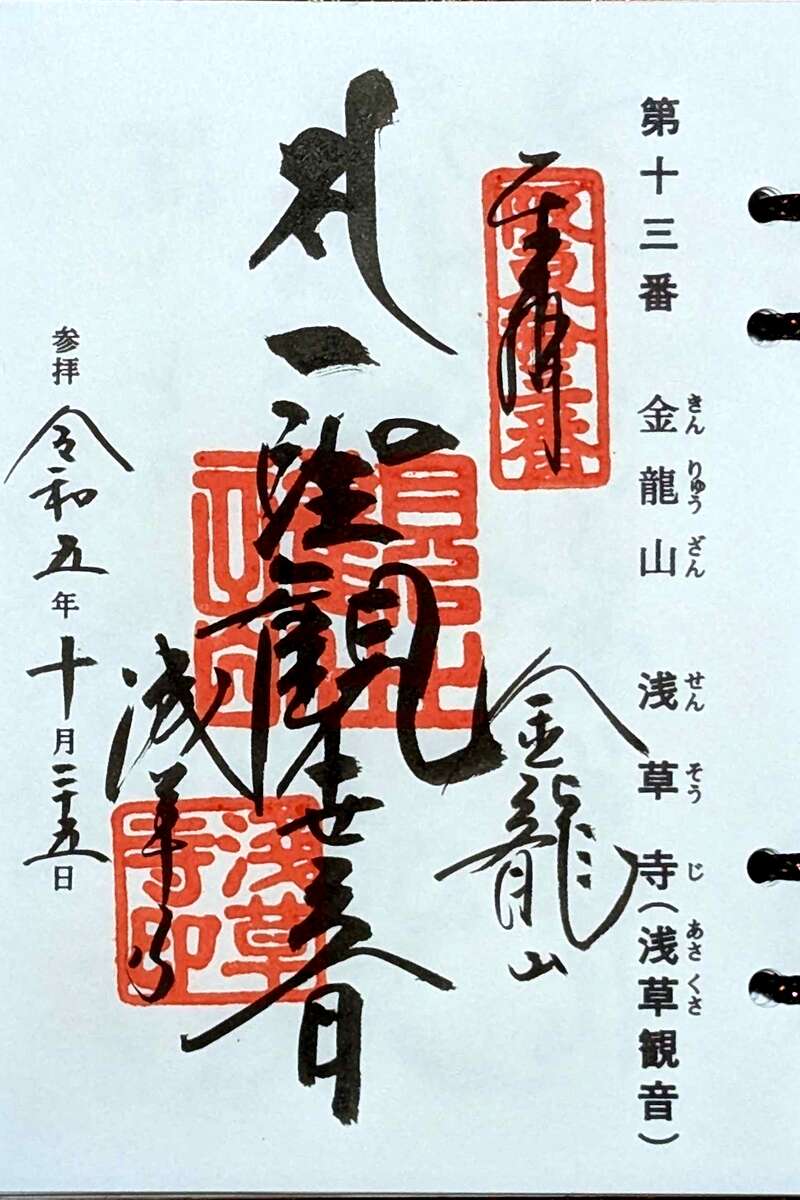 第十三番 金龍山 浅草寺(浅草観音)
きん りゅう ざん せん そう じ あさ くさ
奉拝
金龍山
聖観世音
浅草寺
浅草寺印
参拝 令和五年十月二十五日